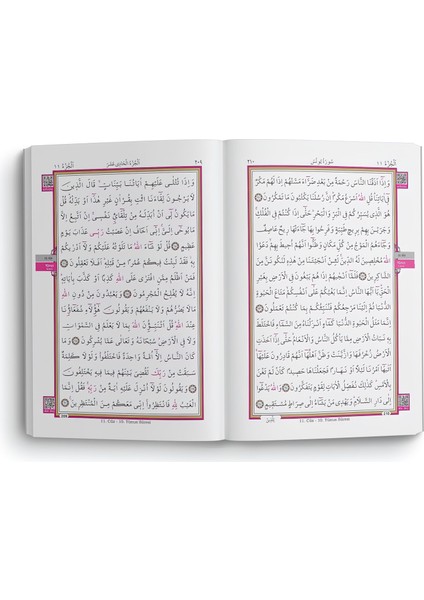 اَلْجُزْءُ ١١
سُورَةُ يُونُسَ
٢١٠
وَاِذَٓا اَذَقْنَا النَّاسَ رَحْمَةً مِنْ بَعْدِ ضَرَّٓاءَ مَسَّتْهُمْ اِذَا لَهُمْ مَكْرٌ
فٓي اٰيَاتِنَاۜ قُلِ اللّٰهُ اَسْرَعُ مَكْرًاۜ اِنَّ رُسُلَنَا يَكْتُبُونَ مَا تَمْكُرُونَ
هُوَ الَّذٖي يُسَيِّرُكُمْ فِي الْبَرِّ وَالْبَحْرِۜ حَتّٰٓى اِذَا كُنْتُمْ فِي الْفُلْكِۚ
وَجَرَيْنَ بِهِمْ بِرٖيحٍ طَيِّبَةٍ وَفَرِحُوا بِهَا جَٓاءَتْهَا رٖيحٌ عَاصِفٌ
وَجَٓاءَهُمُ الْمَوْجُ مِنْ كُلِّ مَكَانٍ وَظَنُّٓوا اَنَّهُمْ اُحٖيطَ بِهِمْۙ دَعَوُا
اللّٰهَ مُخْلِصٖينَ لَهُ الدّٖينَۚ لَئِنْ اَنْجَيْتَنَا مِنْ هٰذِهٖ لَنَكُونَنَّ مِنَ
الشَّاكِرٖينَ فَلَمَّٓا اَنْجٰيهُمْ اِذَا هُمْ يَبْغُونَ فِي الْاَرْضِ بِغَيْرِ
الْحَقِّۜ يَٓا اَيُّهَا النَّاسُ اِنَّمَا بَغْيُكُمْ عَلٰٓى اَنْفُسِكُمْ مَتَاعَ الْحَيٰوةِ
الدُّنْيَاۘ ثُمَّ اِلَيْنَا مَرْجِعُكُمْ فَنُنَبِّئُكُمْ بِمَا كُنْتُمْ تَعْمَلُونَ
اِنَّمَا مَثَلُ الْحَيٰوةِ الدُّنْيَا كَمَٓاءٍ اَنْزَلْنَاهُ مِنَ السَّمَٓاءِ فَاخْتَلَطَ بِهٖ نَبَاتُ
الْاَرْضِ مِمَّا يَأْكُلُ النَّاسُ وَالْاَنْعَامُۜ حَتّٰٓى اِذَٓا اَخَذَتِ
الْاَرْضُ زُخْرُفَهَا وَازَّيَّنَتْ وَظَنَّ اَهْلُهَٓا اَنَّهُمْ قَادِرُونَ عَلَيْهَٓاۙ
اَتٰيهَٓا اَمْرُنَا لَيْلًا اَوْ نَهَارًا فَجَعَلْنَاهَا حَصٖيدًا كَاَنْ لَمْ تَغْنَ
بِالْاَمْسِۜ كَذٰلِكَ نُفَصِّلُ الْاٰيَاتِ لِقَوْمٍ يَتَفَكَّرُونَ وَاللّٰهُ يَدْعُٓوا
اِلٰى دَارِ السَّلَامِۜ وَيَهْدٖي مَنْ يَشَٓاءُ اِلٰى صِرَاطٍ مُسْتَقٖيمٍ
11. Cüz - 10. Yûnus Sûresi
٢٠٩
اَلْجُزْءُ الْحَادِي عَشَرَ
اَلْجُزْءُ ١١
وَاِذَا تُتْلٰى عَلَيْهِمْ اٰيَاتُنَا بَيِّنَاتٍۙ قَالَ الَّذٖينَ
لَا يَرْجُونَ لِقَٓاءَنَا ائْتِ بِقُرْاٰنٍ غَيْرِ هٰذَٓا اَوْ بَدِّلْهُۜ قُلْ
مَا يَكُونُ لٖٓي اَنْ اُبَدِّلَهُ مِنْ تِلْقَٓائِ نَفْسٖيۚ اِنْ اَتَّبِعُ
اِلَّا مَا يُوحٰٓى اِلَيَّۚ اِنّٖٓي اَخَافُ اِنْ عَصَيْتُ رَبّٖي عَذَابَ يَوْمٍ
عَظٖيمٍ قُلْ لَوْ شَٓاءَ اللّٰهُ مَا تَلَوْتُهُ عَلَيْكُمْ وَلَٓا اَدْرٰيكُمْ
بِهٖۘ فَقَدْ لَبِثْتُ فٖيكُمْ عُمُرًا مِنْ قَبْلِهٖۜ اَفَلَا تَعْقِلُونَ
فَمَنْ اَظْلَمُ مِمَّنِ افْتَرٰى عَلَى اللّٰهِ كَذِبًا اَوْ كَذَّبَ بِاٰيَاتِهٖۜ
اِنَّهُ لَا يُفْلِحُ الْمُجْرِمُونَ وَيَعْبُدُونَ مِنْ دُونِ اللّٰهِ
مَا لَا يَضُرُّهُمْ وَلَا يَنْفَعُهُمْ وَيَقُولُونَ هٰٓؤُ۬لَٓاءِ شُفَعَٓاؤُ۬نَا
عِنْدَ اللّٰهِۜ قُلْ اَتُنَبِّؤُ۫نَ اللّٰهَ بِمَا لَا يَعْلَمُ فِي السَّمٰوَاتِ
وَلَا فِي الْاَرْضِۜ سُبْحَانَهُ وَتَعَالٰى عَمَّا يُشْرِكُونَ وَمَا
كَانَ النَّاسُ اِلَّٓا اُمَّةً وَاحِدَةً فَاخْتَلَفُواۜ وَلَوْلَا كَلِمَةٌ
سَبَقَتْ مِنْ رَبِّكَ لَقُضِيَ بَيْنَهُمْ فٖيمَا فٖيهِ يَخْتَلِفُونَ
وَيَقُولُونَ لَوْلَٓا اُنْزِلَ عَلَيْهِ اٰيَةٌ مِنْ رَبِّهٖۚ فَقُلْ اِنَّمَا
الْغَيْبُ لِلّٰهِ فَانْتَظِرُواۚ اِنّٖي مَعَكُمْ مِنَ الْمُنْتَظِرٖينَ
209
11. Cüz - 10. Yûnus Sûresi